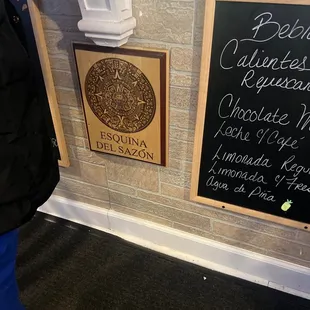 ESQUINA
DEL SAZÓN
Bebi
Calientes
Refrescan
Chocolate M
Leche y Café
Limonada Regu
Limonada y Fres
Agua de Piña